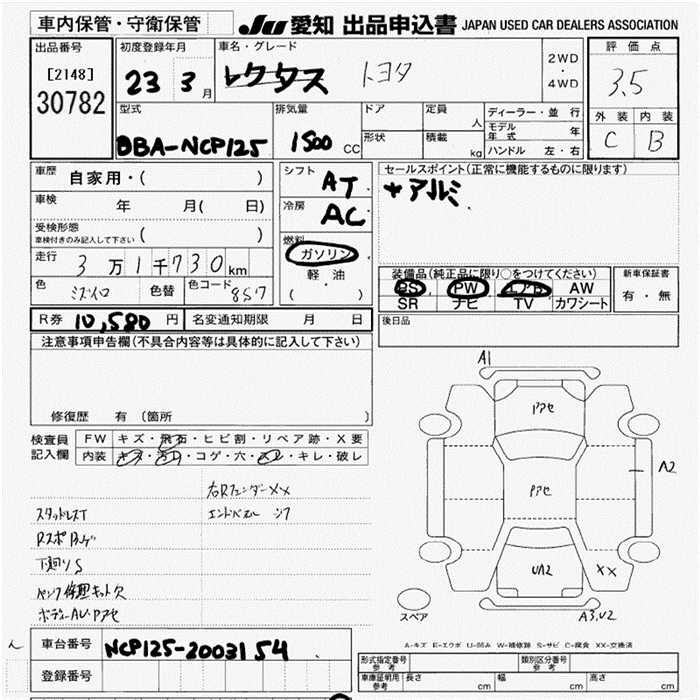 車内保管・守衛保管
JU 愛知 出品申込書 JAPAN USED CAR DEALERS ASSOCIATION
出品番号
[2148]
30782
初度登録年月
23 3月
車名・グレード
トヨタ
2WD
・
4WD
評価点
3.5
外装 内装
C B
型式
DBA-NCP125
排気量
1500 CC
ドア
形状
定員
人
積載
kg
ディーラー・並行
モデル年式 年
ハンドル 左・右
車歴
自家用・( )
車検
年 月( 日)
受検形態
車検付きのみ記入して下さい ( )
走行
3万1千730km
色
ミズイロ
色替
色コード
857
シフト
AT
冷房
AC
燃料
ガソリン
軽油
( ・ )
セールスポイント(正常に機能するものに限ります)
アルミ
装備品(純正品に限り○をつけてください)
PS PW エアB AW
SR ナビ TV カワシート
新車保証書
有・無
R券 10,580円
名変通知期限 月 日
後日品
注意事項申告欄(不具合内容等は具体的に記入して下さい)
修復歴 有 (箇所 )
検査員
記入欄
FW キズ・飛石・ヒビ割・リペア跡・X要
内装 キズ・汚れ・コゲ・穴・スレ・キレ・破レ
右Rフェンダー××
スタッドレスT
下回りS
パンク修理キット欠
ボデーAU・Pアセ
A1
Pアセ
Pアセ
A2
UA2
××
A3,U2
スペア
A-キズ E-エクボ U-凹み W-補修跡 S-サビ C-腐食 XX-交換済
車台番号
NCP125-2003154
登録番号
形式指定番号
参考
類別区分番号
参考
車庫証明用
参考
長さ cm
幅 cm
高さ cm